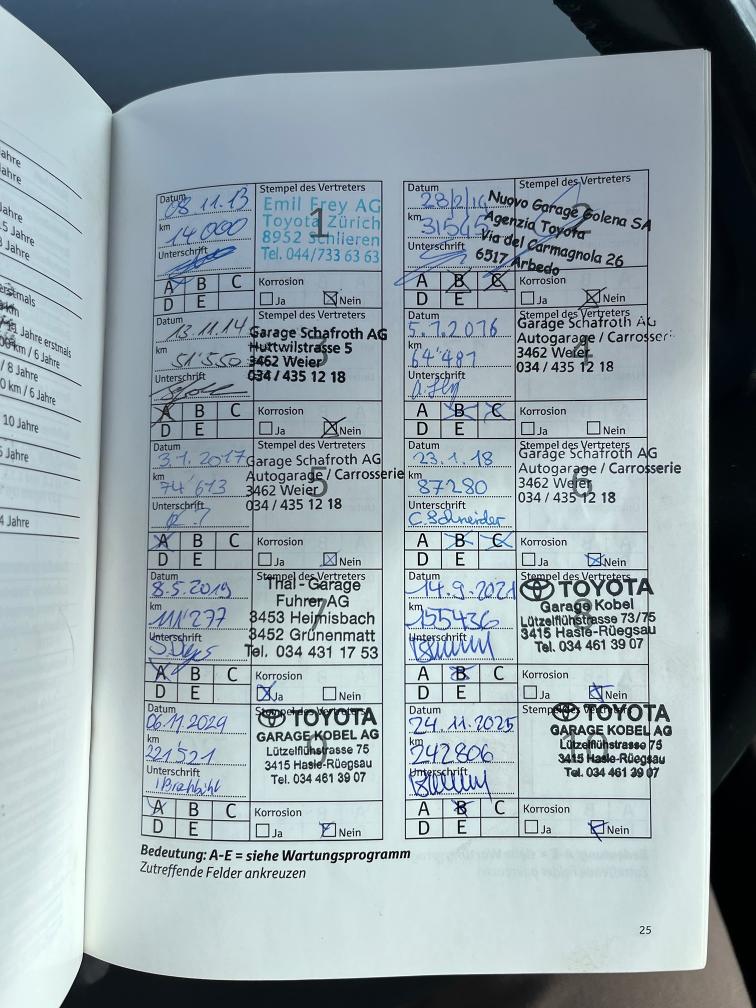 ahre
ahre
Jahre
5 Jahre
Jahre
erstmals
Jahre erstmals
km / 6 Jahre
/ 8 Jahre
0 km / 6 Jahre
10 Jahre
Jahre
4 Jahre
Datum
08.11.13
km
14000
Unterschrift
Stempel des Vertreters
1
Emil Frey AG
Toyota Zürich
8952 Schlieren
Tel. 044/733 63 63
A B C
D E
Korrosion
Ja Nein
Datum
28/2/14
km
Unterschrift
Stempel des Vertreters
2
Nuovo Garage Golena SA
Agenzia Toyota
Via del Carmagnola 26
6517 Arbedo
A B C
D E
Korrosion
Ja Nein
Datum
13.11.14
km
51'550
Unterschrift
3
Garage Schafroth AG
Huttwilstrasse 5
3462 Weier
034 / 435 12 18
A B C
D E
Korrosion
Ja Nein
Datum
5.7.2016
km
64'481
Unterschrift
Stempel des Vertreters
4
Garage Schafroth AG
Autogarage / Carrosser
3462 Weier
034 / 435 12 18
A B C
D E
Korrosion
Ja Nein
Datum
3.1.2017
km
74'613
Unterschrift
Stempel des Vertreters
5
Garage Schafroth AG
Autogarage / Carrosserie
3462 Weier
034 / 435 12 18
A B C
D E
Korrosion
Ja Nein
Datum
23.1.18
km
87280
Unterschrift
C. Schneider
Stempel des Vertreters
6
Garage Schafroth AG
Autogarage / Carrosserie
3462 Weier
034 / 435 12 18
A B C
D E
Korrosion
Ja Nein
Datum
8.5.2019
km
111'277
Unterschrift
Stempel des Vertreters
7
Thal-Garage
Fuhrer AG
3453 Heimisbach
3452 Grünenmatt
Tel. 034 431 17 53
A B C
D E
Korrosion
Ja Nein
Datum
14.9.2021
km
155436
Unterschrift
Stempel des Vertreters
8
TOYOTA
Garage Kobel
Lützelflühstrasse 73/75
3415 Hasle-Rüegsau
Tel. 034 461 39 07
A B C
D E
Korrosion
Ja Nein
Datum
km
221'521
Unterschrift
Stempel des Vertreters
TOYOTA
GARAGE KOBEL AG
Lützelflühstrasse 75
3415 Hasle-Rüegsau
Tel. 034 461 39 07
A B C
D E
Korrosion
Ja Nein
Datum
24.11.2025
km
242806
Unterschrift
Stempel des Vertreters
10
TOYOTA
GARAGE KOBEL AG
Lützelflühstrasse 75
3415 Hasle-Rüegsau
Tel. 034 461 39 07
A B C
D E
Korrosion
Ja Nein
Bedeutung: A-E = siehe Wartungsprogramm
Zutreffende Felder ankreuzen
25